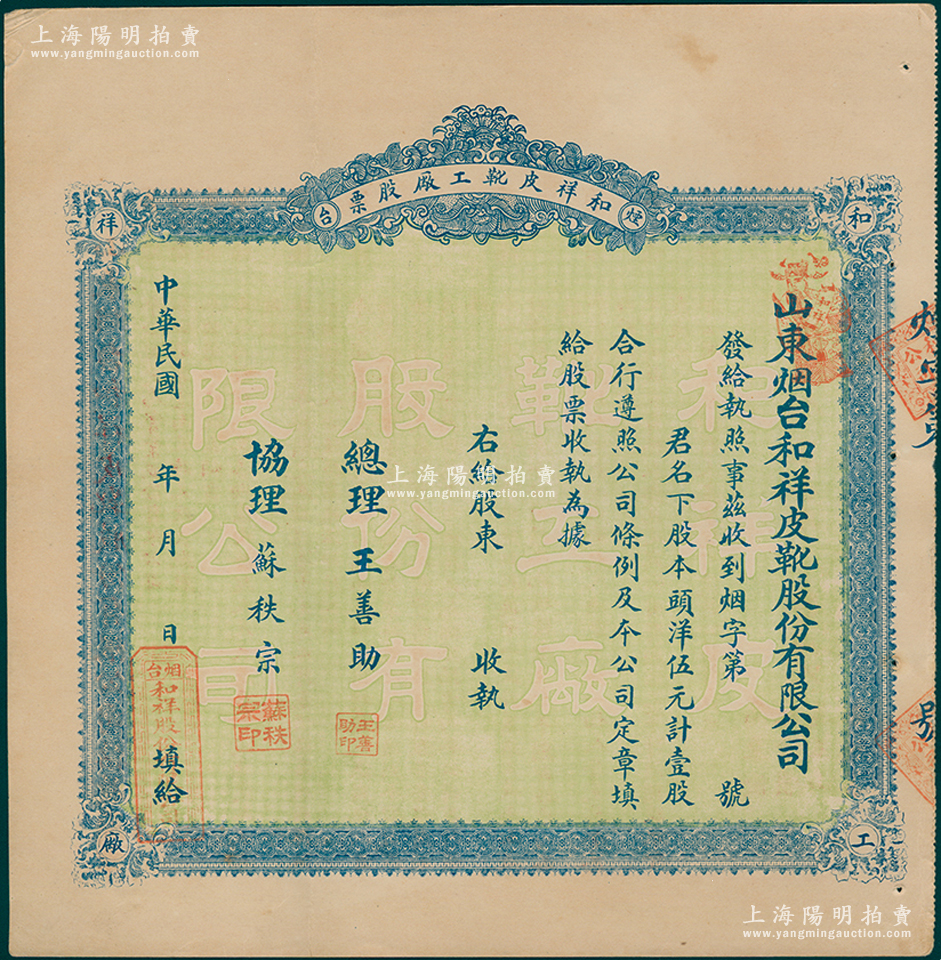 上海陽明拍賣
www.yangmingauction.com
煙 和祥皮靴工廠股票 台
和
祥
工
廠
山東烟台和祥皮靴股份有限公司
發給執照事茲收到烟字第 號
君名下股本頭洋伍元計壹股
合行遵照公司條例及本公司定章填
給股票收執為據
右給股東 收執
總理 王善助
王善助印
協理 蘇秩宗
蘇秩宗印
中華民國 年 月 日 填給
烟台和祥股份
和祥皮
靴工廠
股份有
限公司
號
上海陽明拍賣
www.yangmingauction.com
上海陽明拍賣
www.yangmingauction.com